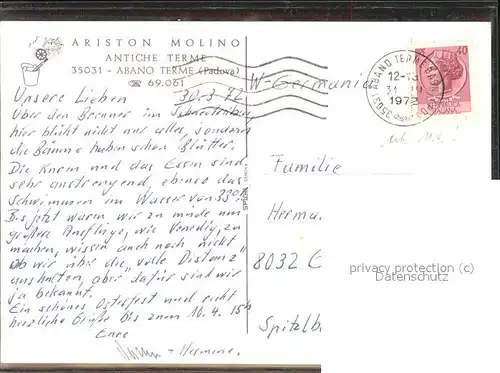 ARISTON MOLINO
ANTICHE TERME
35031 - ABANO TERME (Padova)
☎ 69.061
W-Germania
40
ABANO TERME
12-13
31
1972
Unsere Lieben 30.3.72
Über den Brenner im Schneetreiben
hier blüht nicht nur alles, sondern
die Bäume haben schon Blätter.
Die Kuren und das Essen sind
sehr anstrengend, ebenso das
Schwimmen im Wasser von 33°
Bis jetzt waren wir zu müde um
größere Ausflüge, wie Venedig, zu
machen, wissen auch noch nicht
ob wir über die "volle Distanz"
aushalten aber dafür sind wir
ja bekannt.
Ein schönes Osterfest und recht
herzliche Grüße bis zum 10.4.
Eure
Familie
Herma
8032
Spitzlb
privacy protection (c)
Datenschutz